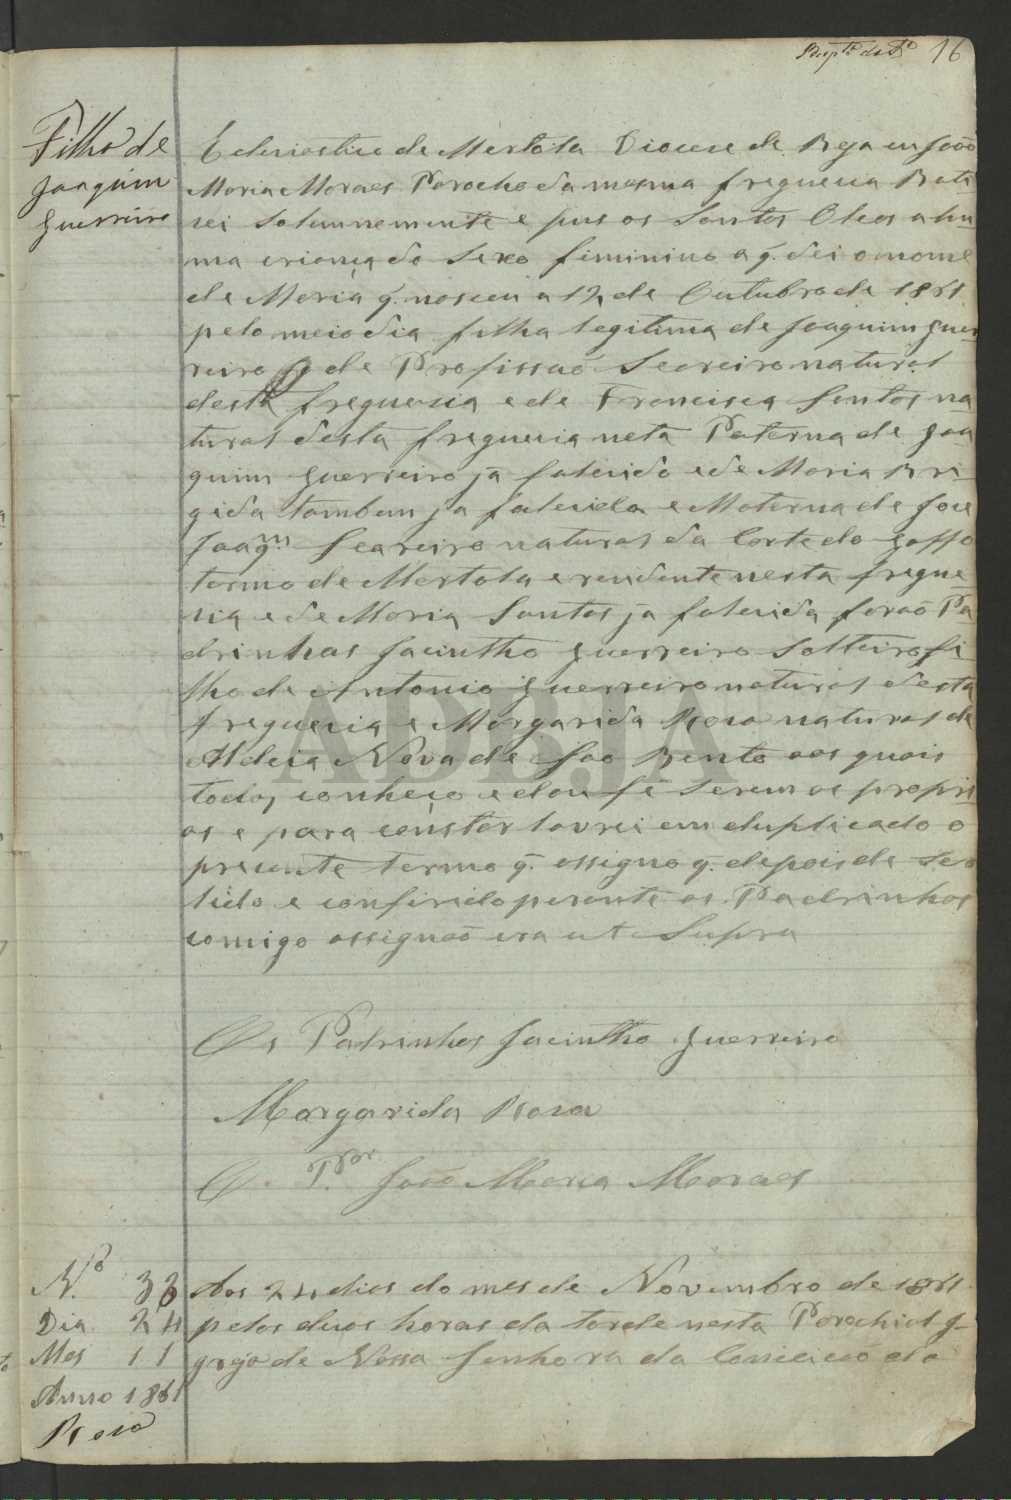 Bapt.º da F.ª 16
Filha de
Joaquim
Guerreiro
Ecleziastico de Mertola Diocese de Beja eu João
Maria Moraes Parocho da mesma freguezia Bati
zei Solemnemente e pus os Santos Oleos a hu
ma criança do Sexo feminino a q. dei o nome
de Maria q. nasceu a 12 de Outubro de 1861
pelo meio dia filha legitima de Joaquim Guer
reiro de Profissaõ Seareiro natural
desta freguezia e de Francisca Santos na
tural desta freguezia neta Paterna de Joa
quim Guerreiro ja falecido e de Maria Bri
gida tambem ja falecida e Materna de Joze
Joaq.m Seareiro natural da Corte do Gaffo
termo de Mertola e rezidente nesta fregue
zia e de Maria Santos ja falecida foraõ Pa
drinhos Jacintho Guerreiro Solteiro fi
lho de Antonio Guerreiro natural desta
freguezia e Margarida Roza natural de
Aldeia Nova de Saõ Bento aos quais
todos conheço e dou fé Serem os propri
os e para constar lavrei em duplicado o
prezente termo q. assigno q. depois de Ser
lido e conferido perante os Padrinhos
comigo assignaõ era ut Supra
Os Padrinhos Jacintho Guerreiro
Margarida Roza
O P.or João Maria Moraes
N.º 33
Dia 24
Mes 11
Anno 1861
Roza
Aos 24 dias do mes de Novembro de 1861
pelas duas horas da tarde nesta Parochial I
greja de Nossa Senhora da Conceicaõ da
ADBJA